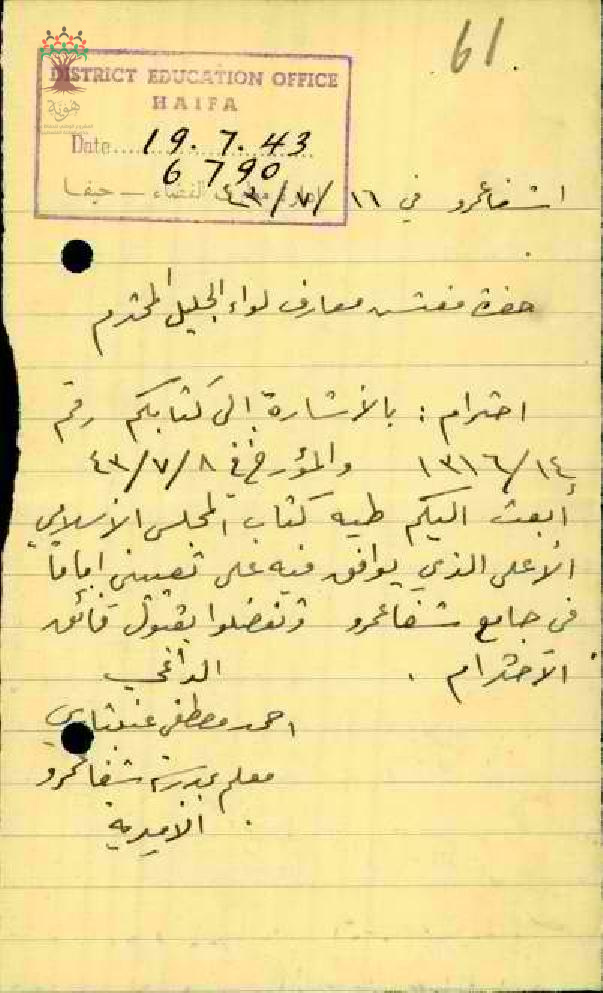 61.
DISTRICT EDUCATION OFFICE
HAIFA
Date.... 19.7.43
6790
القضاء — حيفا
هوية
اشفاعمرو في ١٦/٧/٤٣
حضرة مفتش معارف لواء الجليل المحترم
احترام: بالأشارة الى كتابكم رقم
١٣١٦/١٤ والمؤرخ في ٤٣/٧/٨
أبعث اليكم طيه كتاب المجلس الأسلامي
الأعلى الذي يوافق فيه على تعييني إماماً
في جامع شفاعمرو وتفضلوا بقبول فائق
الأحترام.
الداعي
احمد مصطفى
معلم بمدرسة شفاعمرو
الأميرية